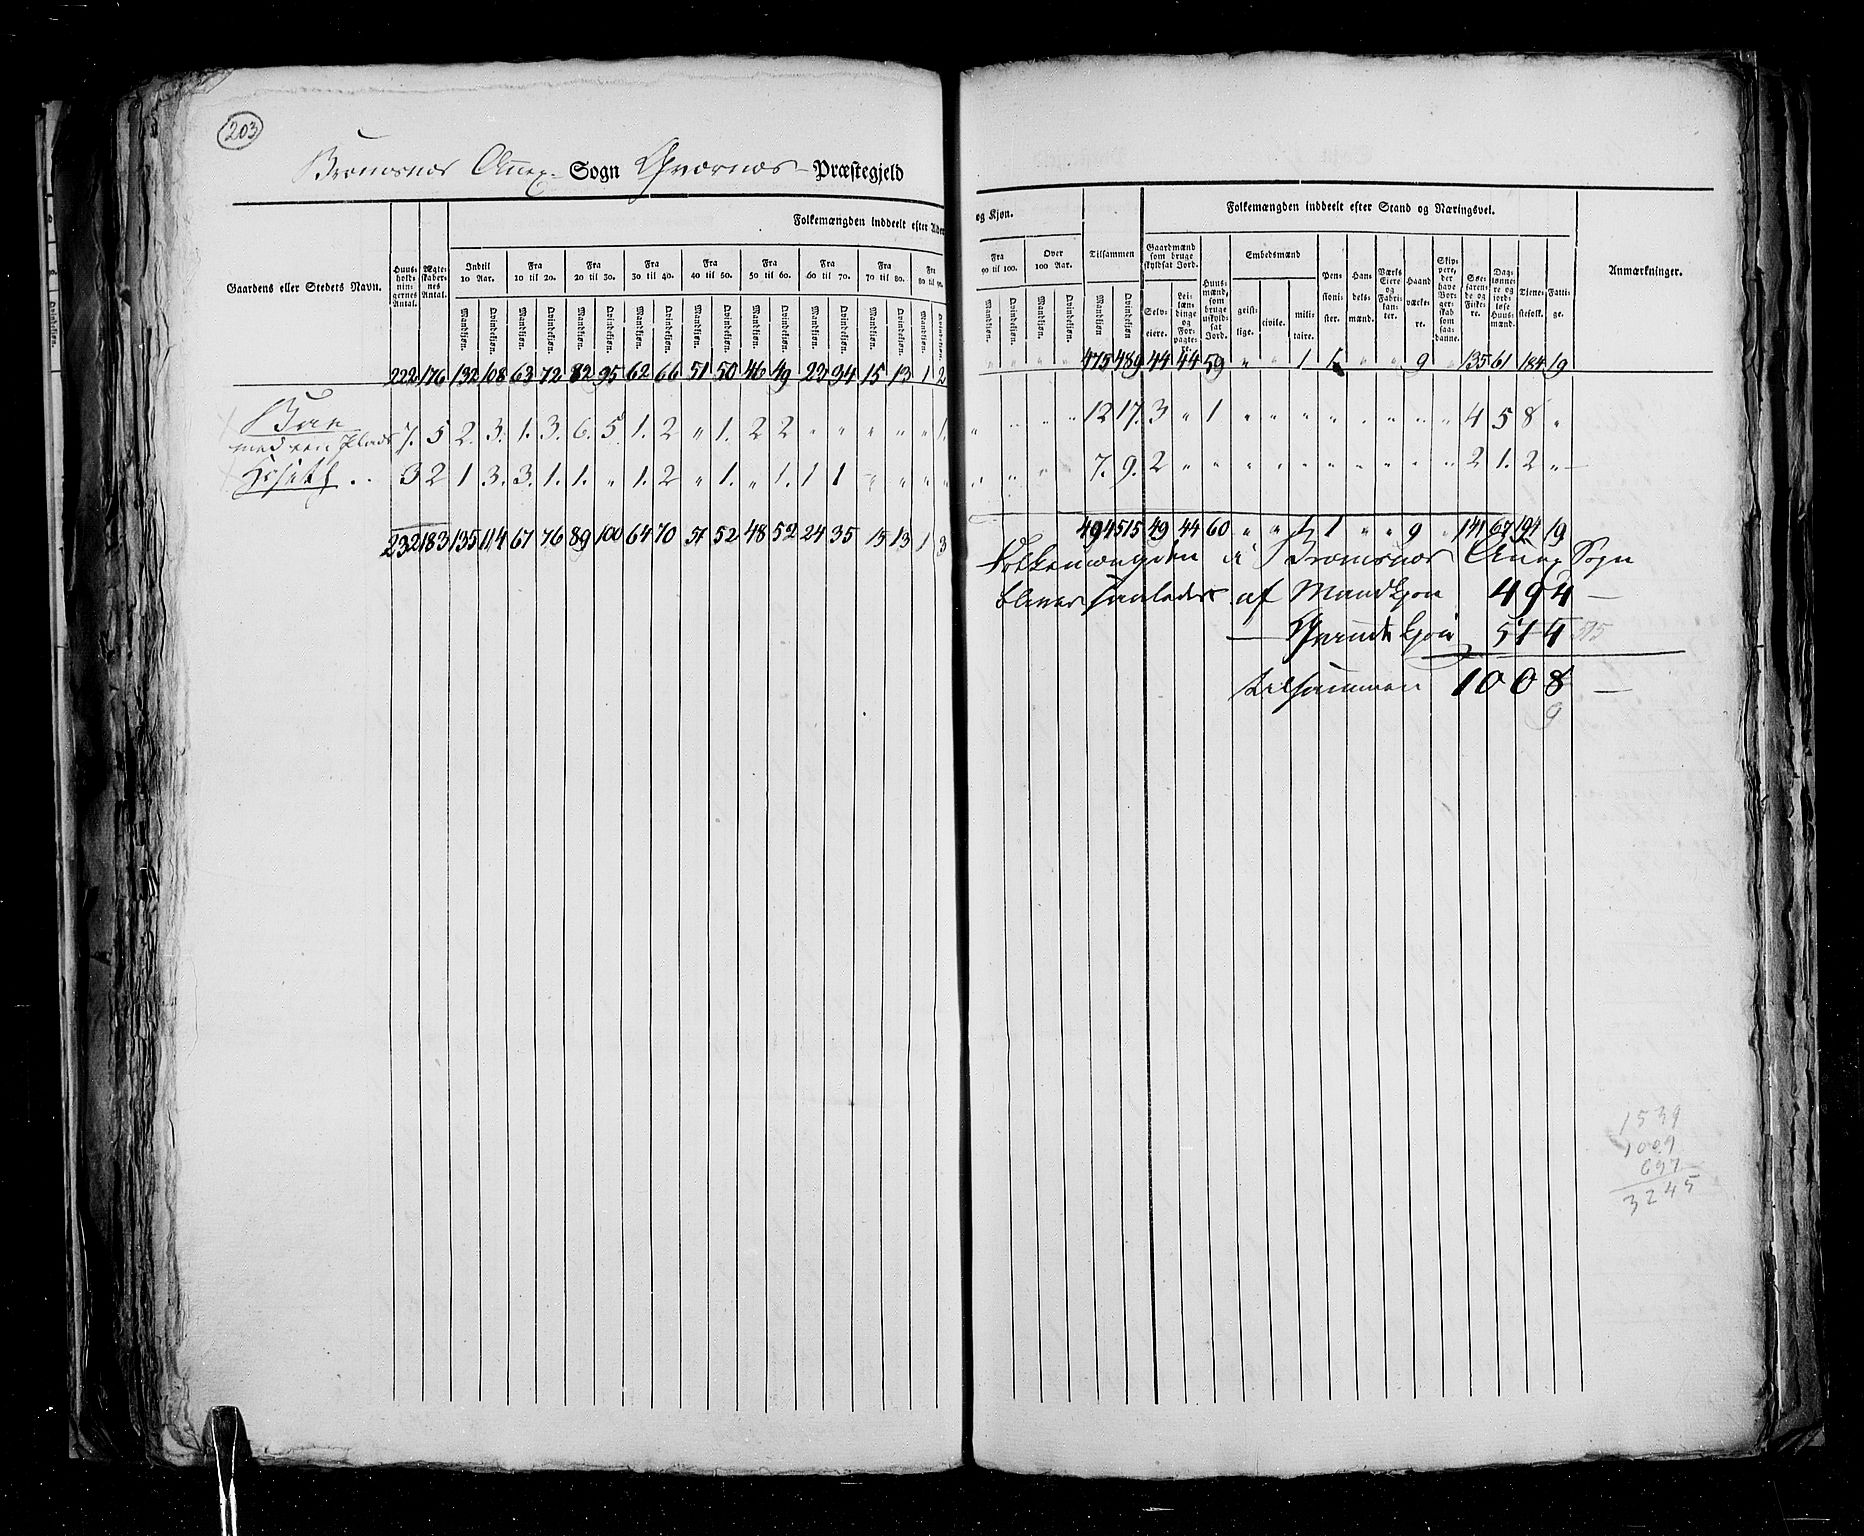 203
Bremsnæs Annex- Sogn Qværnæs- Præstegjeld
Folkemængden inddeelt efter Alder
og Kjøn.
Folkemængden inddeelt efter Stand og Næringsvei.
Gaardens eller Stedets Navn.
Huus-holdningernes Antal.
Ægteskabernes Antal.
Indtil 10 Aar.
Fra 10 til 20.
Fra 20 til 30.
Fra 30 til 40.
Fra 40 til 50.
Fra 50 til 60.
Fra 60 til 70.
Fra 70 til 80.
Fra 80 til 90.
Fra 90 til 100.
Over 100 Aar.
Tilsammen
Mandkjøn. Qvindekjøn. Mandkjøn. Qvindekjøn. Mandkjøn. Qvindekjøn. Mandkjøn. Qvindekjøn. Mandkjøn. Qvindekjøn. Mandkjøn. Qvindekjøn. Mandkjøn. Qvindekjøn. Mandkjøn. Qvindekjøn. Mandkjøn. Qvindekjøn.
Mandkjøn. Qvindekjøn. Mandkjøn. Qvindekjøn. Mandkjøn Qvindekjøn.
Gaardmænd som bruge skyldsat Jord.
Selveiere.
Leilændinge og Forpagtere.
Huusmænd, som bruge uskyldsat Jord.
Embedsmænd
geistlige. civile. militaire.
Pensionister.
Handelsmænd.
Værks Eiere og Fabrikanter.
Haandværkere.
Skippere, der have Borgerskab som saadanne.
Søefarende og Fiskere.
Daglønnere og jordløse Huusmænd.
Tjenestefolk.
Fattige.
Anmærkninger.
222 176 132 108 63 72 82 95 62 66 51 50 46 49 23 94 15 13 1 2 " " " " 475 489 44 44 59 " " 1 1 " " 9 " 135 61 184 19
Bae
med een Plads 7. 5 2. 3. 1. 3. 6. 5. 1. 2 " 1. 2 2 " " " " " 1. " " " " 12 17. 3 " 1 " " " " " " " " 4 5 8 "
3 2 1 3. 3. 1. 1. " 1. 2 " 1. " 1. 1 1 " " " " " " " 7. 9. 2 " " " " " " " " " " 2 1. 2 "
232 183 135 114 67 76 89 100 64 70 51 52 48 52 24 35 15 13 1 3 494 515 49 44 60 " " 1 1 " " 9 " 141 67 194 19
Folkemængden i Bremsnæs Annex Sogn
bliver saaledes af Mandkjøn 494 —
— Qvindekjøn 514 515
tilsammen 1008 —
9
1539
1009
697
3245